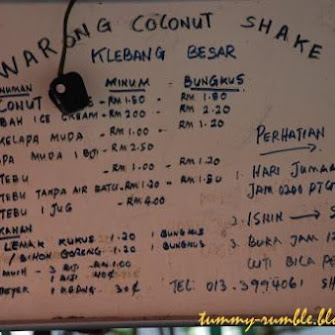 WARONG COCONUT SHAKE
KLEBANG BESAR
NUMAN MINUM BUNGKUS
CONUT RM 1.50 - RM 1.80
BAH ICE CREAM - RM 2.00 - RM 2.20
KELAPA MUDA - RM 1.00 - RM 1.20
PA MUDA 1 BIJI - RM 2.50
TEBU - RM 1.00 - RM 1.20
TEBU TANPA AIR BATU - RM 1.20 - RM 1.50
TEBU 1 JUG - RM 4.00
KANAN
LEMAK KUKUS 1.20 1 BUNGKUS
/ BIHUN GORENG 1.20 1 BUNGKUS
3 BIJI RM 1.00
1 BIJI 40¢
1 KEPING 30¢
PERHATIAN
HARI JUMA
JAM 0200 PTG
ISNIN
3. BUKA JAM
TEL: 013-3994061
tummy-rumble.blo